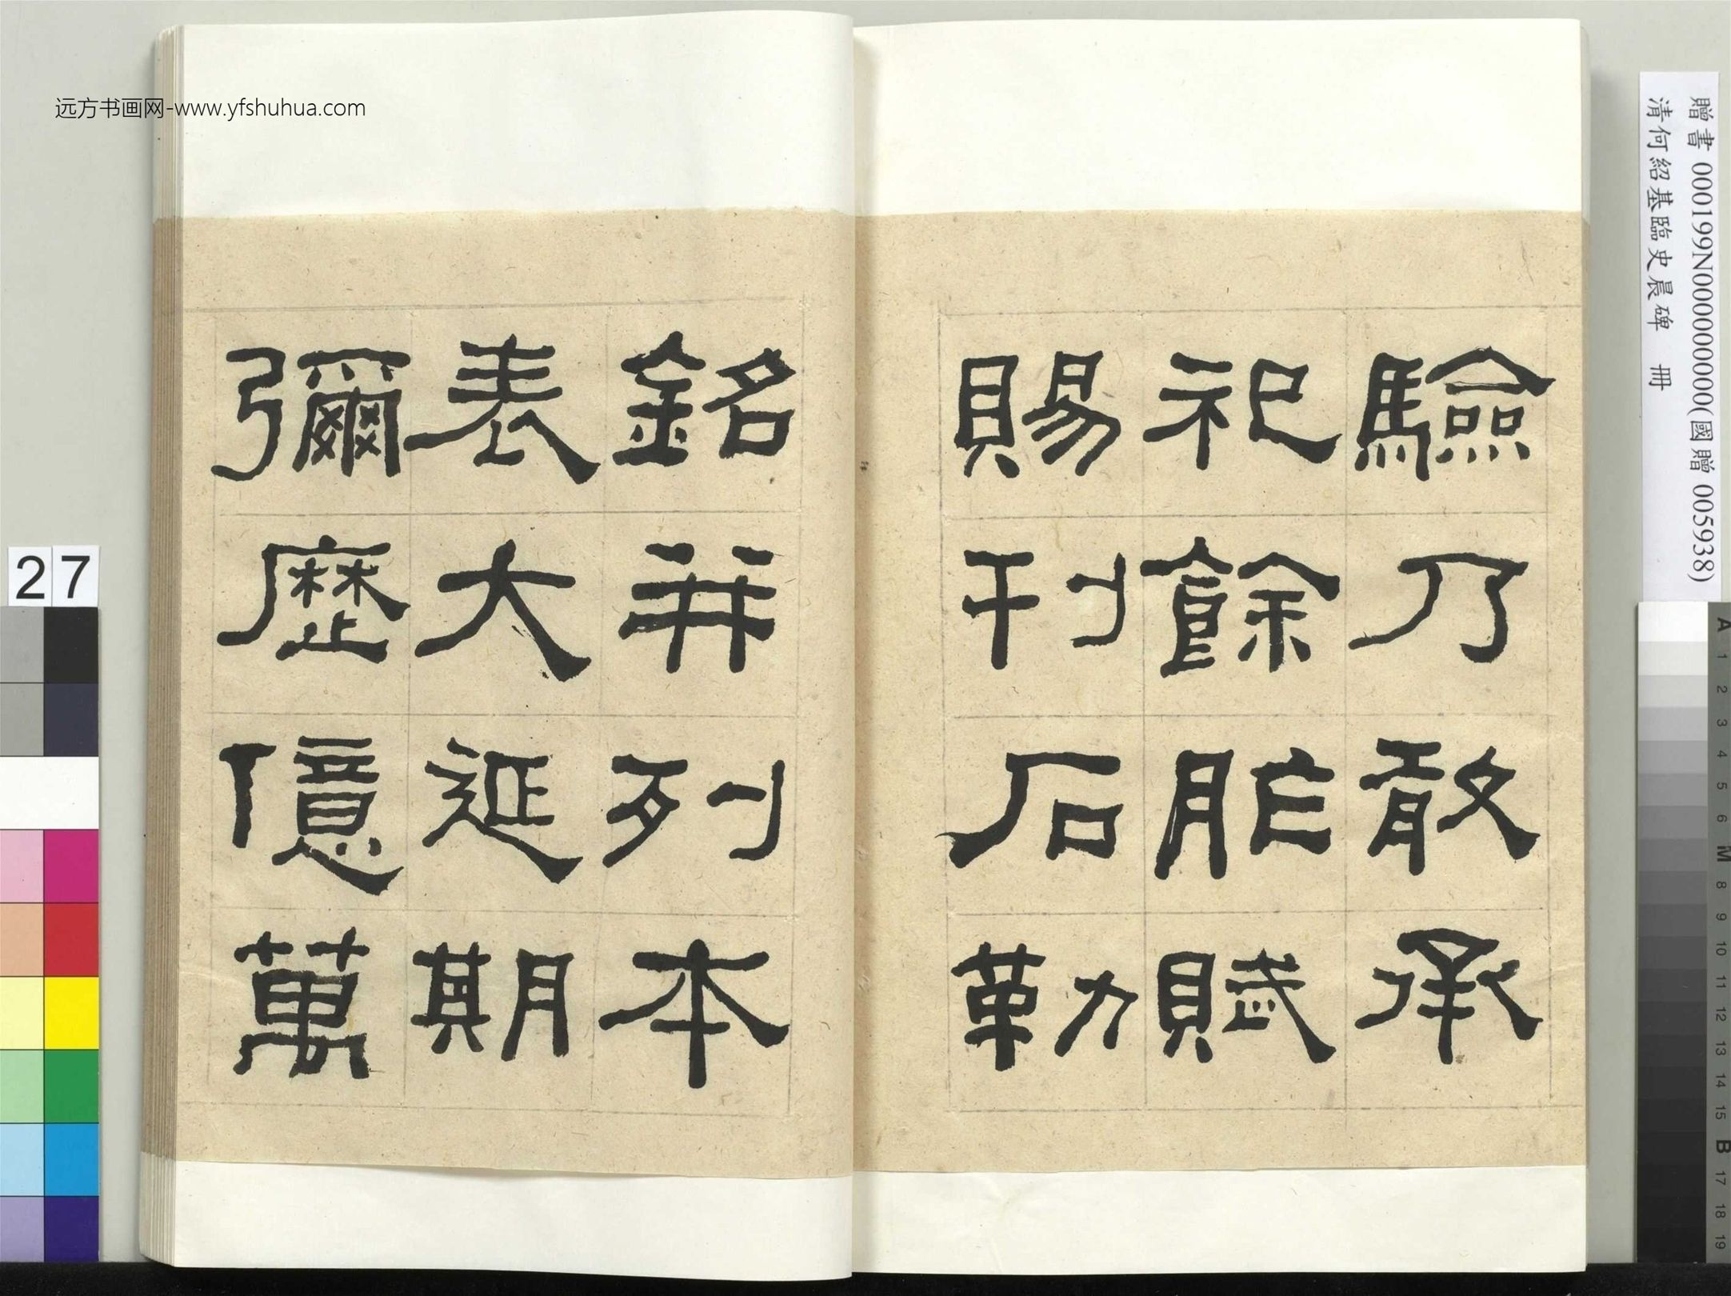 远方书画网-www.yfshuhua.com
驗乃敢承
祀餘胙賦
賜刊石勒
銘并列本
表大延期
彌歷億萬
贈書 000199N000000000(國贈 005938)
清何紹基臨史晨碑 冊
27
A 1 2 3 4 5 6 M 8 9 10 11 12 13 14 15 B 17 18 19